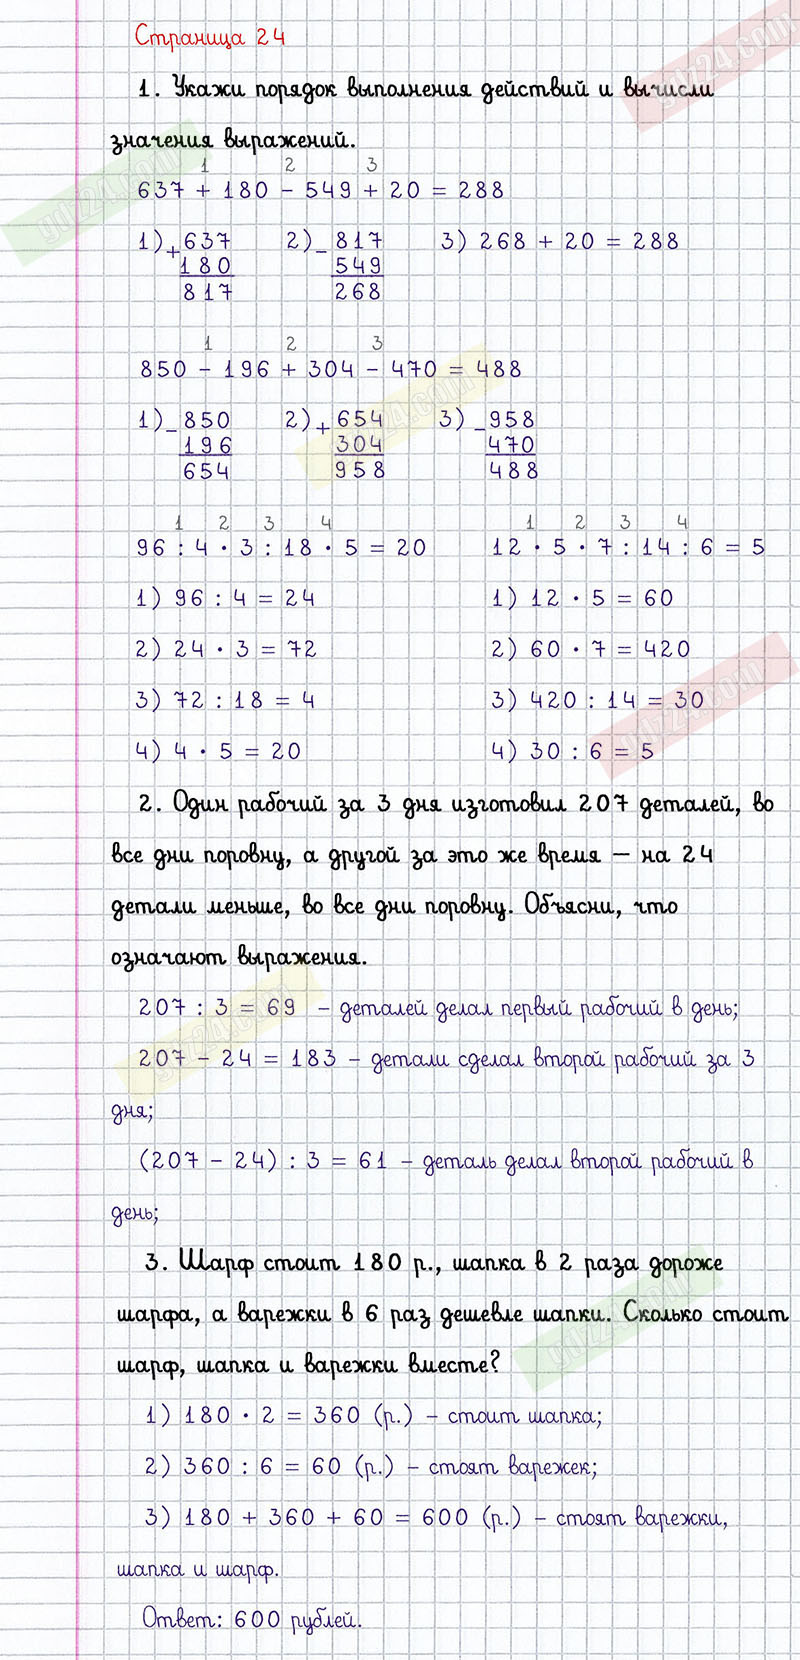 Страница 24
1. Укажи порядок выполнения действий и вычисли
значения выражений.
1 2 3
637 + 180 - 549 + 20 = 288
1) + 637 2) - 817 3) 268 + 20 = 288
180 549
817 268
1 2 3
850 - 196 + 304 - 470 = 488
1) - 850 2) + 654 3) - 958
196 304 470
654 958 488
1 2 3 4 1 2 3 4
96 : 4 · 3 : 18 · 5 = 20 12 · 5 · 7 : 14 : 6 = 5
1) 96 : 4 = 24 1) 12 · 5 = 60
2) 24 · 3 = 72 2) 60 · 7 = 420
3) 72 : 18 = 4 3) 420 : 14 = 30
4) 4 · 5 = 20 4) 30 : 6 = 5
2. Один рабочий за 3 дня изготовил 207 деталей, во
все дни поровну, а другой за это же время — на 24
детали меньше, во все дни поровну. Объясни, что
означают выражения.
207 : 3 = 69 - деталей делал первый рабочий в день;
207 - 24 = 183 - детали сделал второй рабочий за 3
дня;
(207 - 24) : 3 = 61 - деталь делал второй рабочий в
день;
3. Шарф стоит 180 р., шапка в 2 раза дороже
шарфа, а варежки в 6 раз дешевле шапки. Сколько стоит
шарф, шапка и варежки вместе?
1) 180 · 2 = 360 (р.) - стоит шапка;
2) 360 : 6 = 60 (р.) - стоят варежек;
3) 180 + 360 + 60 = 600 (р.) - стоят варежки,
шапка и шарф.
Ответ: 600 рублей.
gdz24.com
gdz24.com
gdz24.com
gdz24.com
gdz24.com
gdz24.com